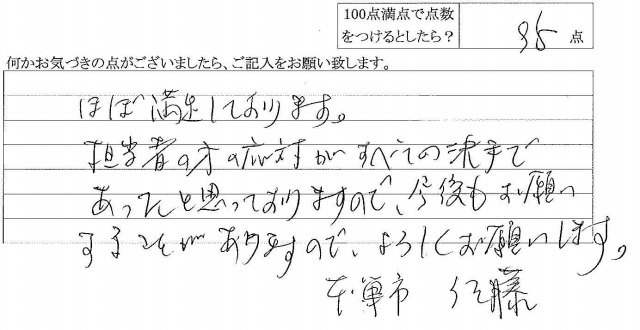 100点満点で点数
をつけるとしたら?
95 点
何かお気づきの点がございましたら、ご記入をお願い致します。
ほぼ満足しております。
担当者の方の応対がすべての決手で
あったと思っておりますので、今後もお願い
することがありますので、よろしくお願いします。
本巣市 佐藤